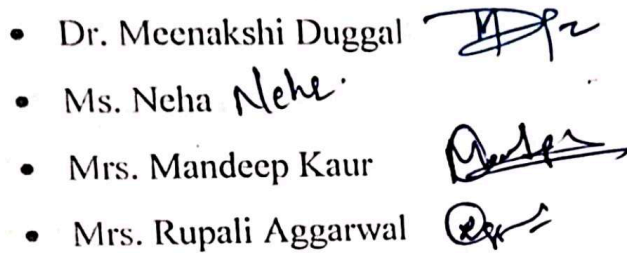 • Dr. Meenakshi Duggal
• Ms. Neha Neha.
• Mrs. Mandeep Kaur
• Mrs. Rupali Aggarwal